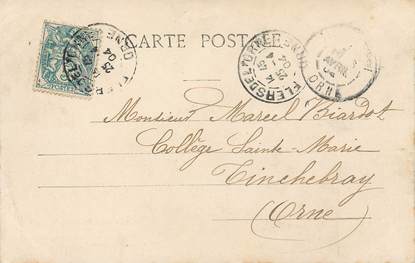 CARTE POSTALE
FLERS DE L'ORNE
ORNE
Monsieur Marcel Biardot
Collège Sainte-Marie
Tinchebray
(Orne)